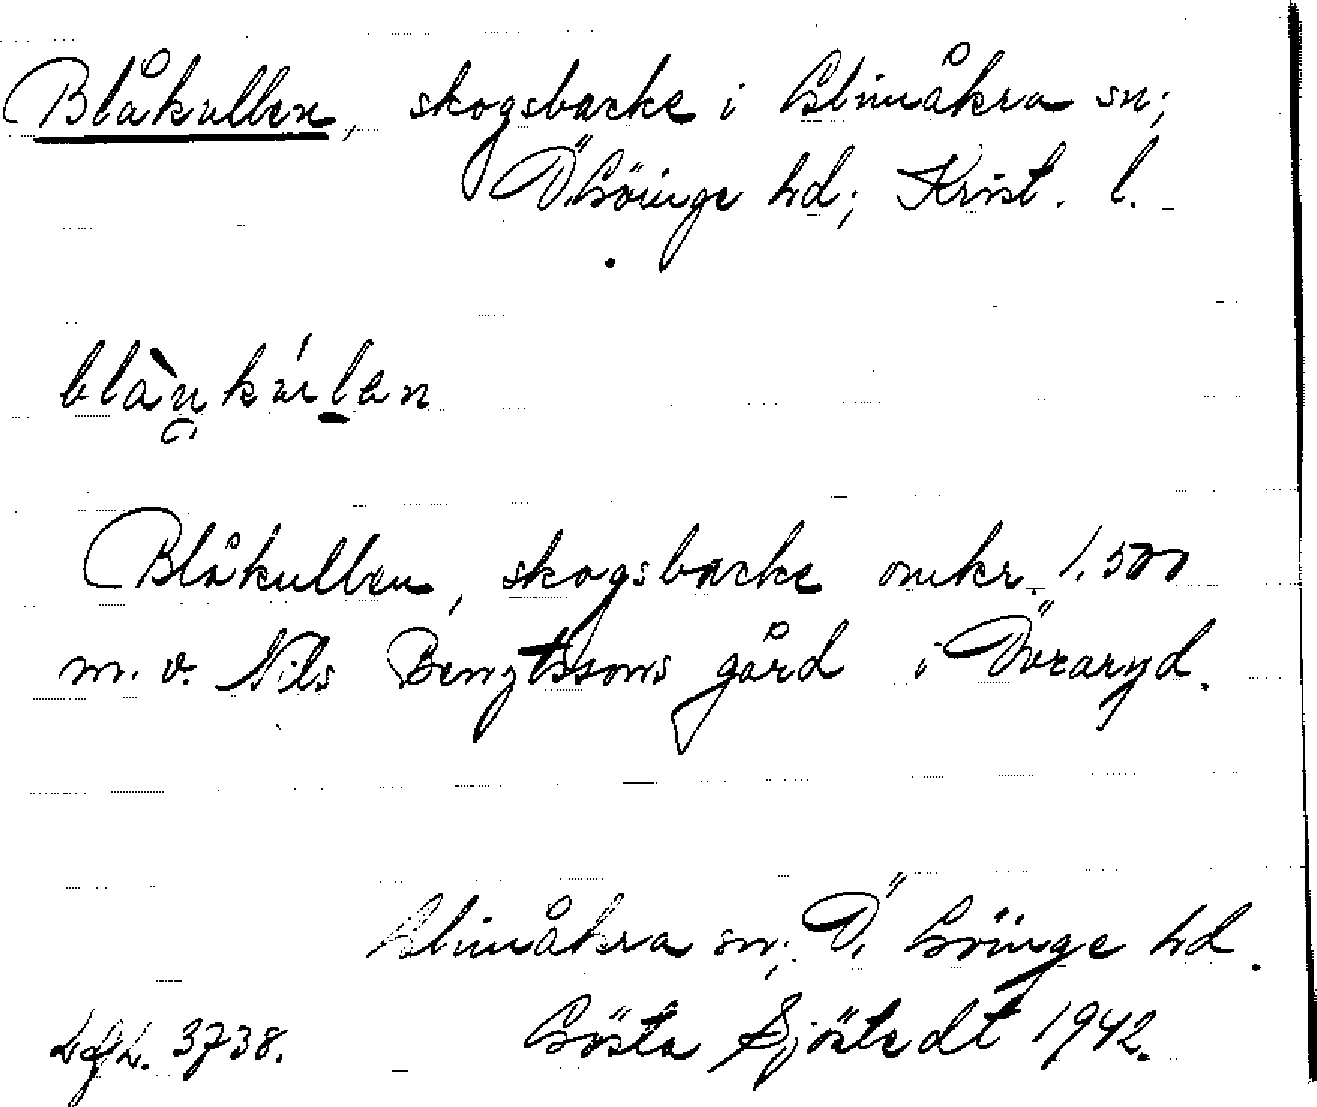 Blåkullen, skogsbacke i Glimåkra sn;
Ö. Göinge hd; Krist. l.
Blåkullen, skogsbacke omkr. 1,500
m. v. Nils Bengtssons gård i Övraryd.
Glimåkra sn; Ö. Göinge hd.
3738. Gösta Sjöstedt 1942.